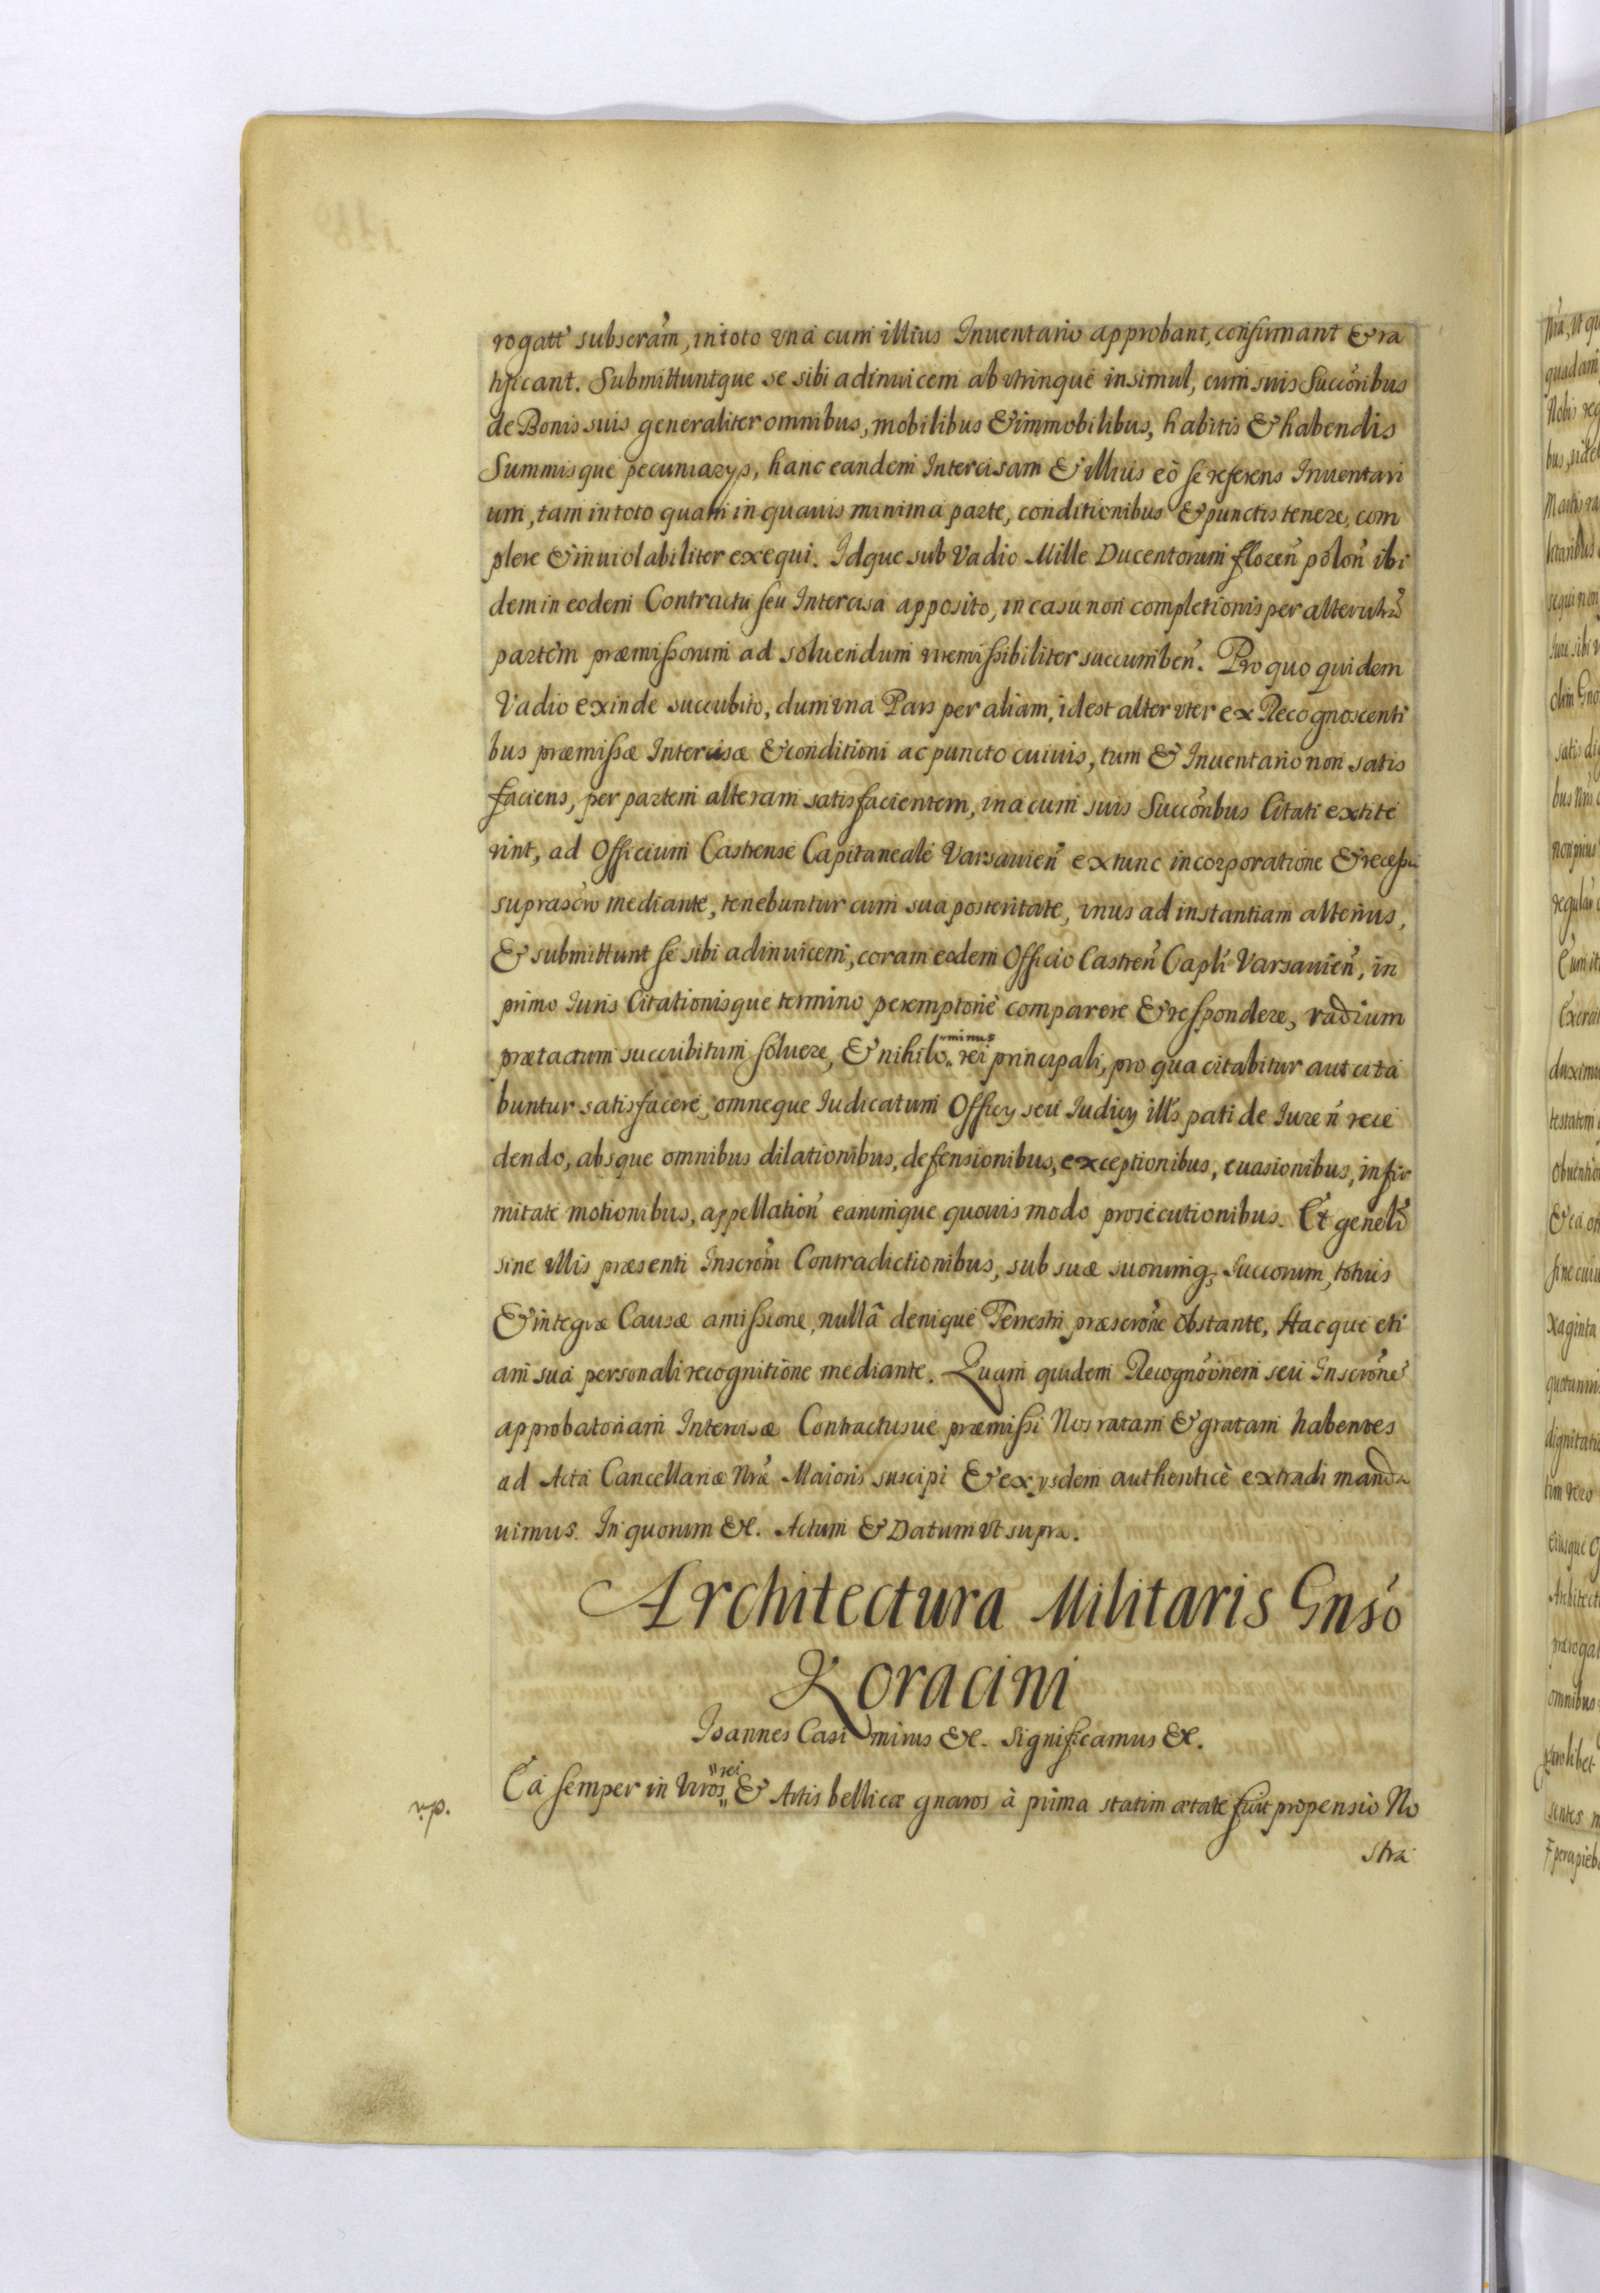 rogatt subscram, in toto vna cum illius Inuentario approbant, confirmant & ra
tificant. Submittuntque se sibi adinuicem ab vtrinque insimul, cum suis Succoribus
de Bonis suis generaliter omnibus, mobilibus & immobilibus, habitis & habendis
Summisque pecuniarys, hanc eandem Intercisam & illius eò se referens Inuentari
um, tam in toto quam in quauis minima parte, conditionibus & punctis tenere, com
plere & inuiolabiliter exequi. Idque sub Vadio Mille Ducentorum floren polon ibi
dem in eodem Contractu seu Intercisa apposito, in casu non completionis per alterutrã
partem præmissorum ad soluendum irremissibiliter succumben. Pro quo quidem
Vadio exinde succubito, dum vna Pars per aliam, id est alter vter ex Recognoscenti
bus præmissæ Intercisæ & conditioni ac puncto cuiuis, tum & Inuentario non satis
faciens, per partem alteram satisfacientem, vna cum suis Succoribus Citati extite
rint, ad Officium Castrense Capitaneale Varsauien extunc incorporatione & recessu
suprascro mediante, tenebuntur cum sua posteritate, vnus ad instantiam alterius,
& submittunt se sibi adinuicem, coram eodem Officio Castren Capli Varsauien, in
primo Iuris Citationisque termino peremptoriè comparere & respondere, vadium
prætactum succubitum soluere, & nihilominus rei principali, pro qua citabitur aut cita
buntur satisfacere, omneque Iudicatum Officy seu Iudicy illis pati de Iure ñ rece
dendo, absque omnibus dilationibus, defensionibus, exceptionibus, euasionibus, infir
mitate motionibus, appellation earumque quouis modo prosecutionibus. Et genelr
sine vllis præsenti Inscrom Contradictionibus, sub suæ suorumq; Succorum, totius
& integræ Causæ amissione, nullâ denique Terrestri præscrone obstante, Hacque eti
am sua personali recognitione mediante. Quam quidem Recognoinem seu Inscrone
approbatoriam Intercisæ Contractusue præmissi Nos ratam & gratam habentes
ad Acta Cancellariæ Nræ Maioris suscipi & ex ysdem authenticè extradi manda
uimus. In quorum &c. Actum & Datum vt supra.
Architectura Militaris Gnso
Koracini
Ioannes Casimirus &c. Significamus &c.
Ea semper in Viros rei & Artis bellicæ gnaros à prima statim ætate fuit propensio No
stra